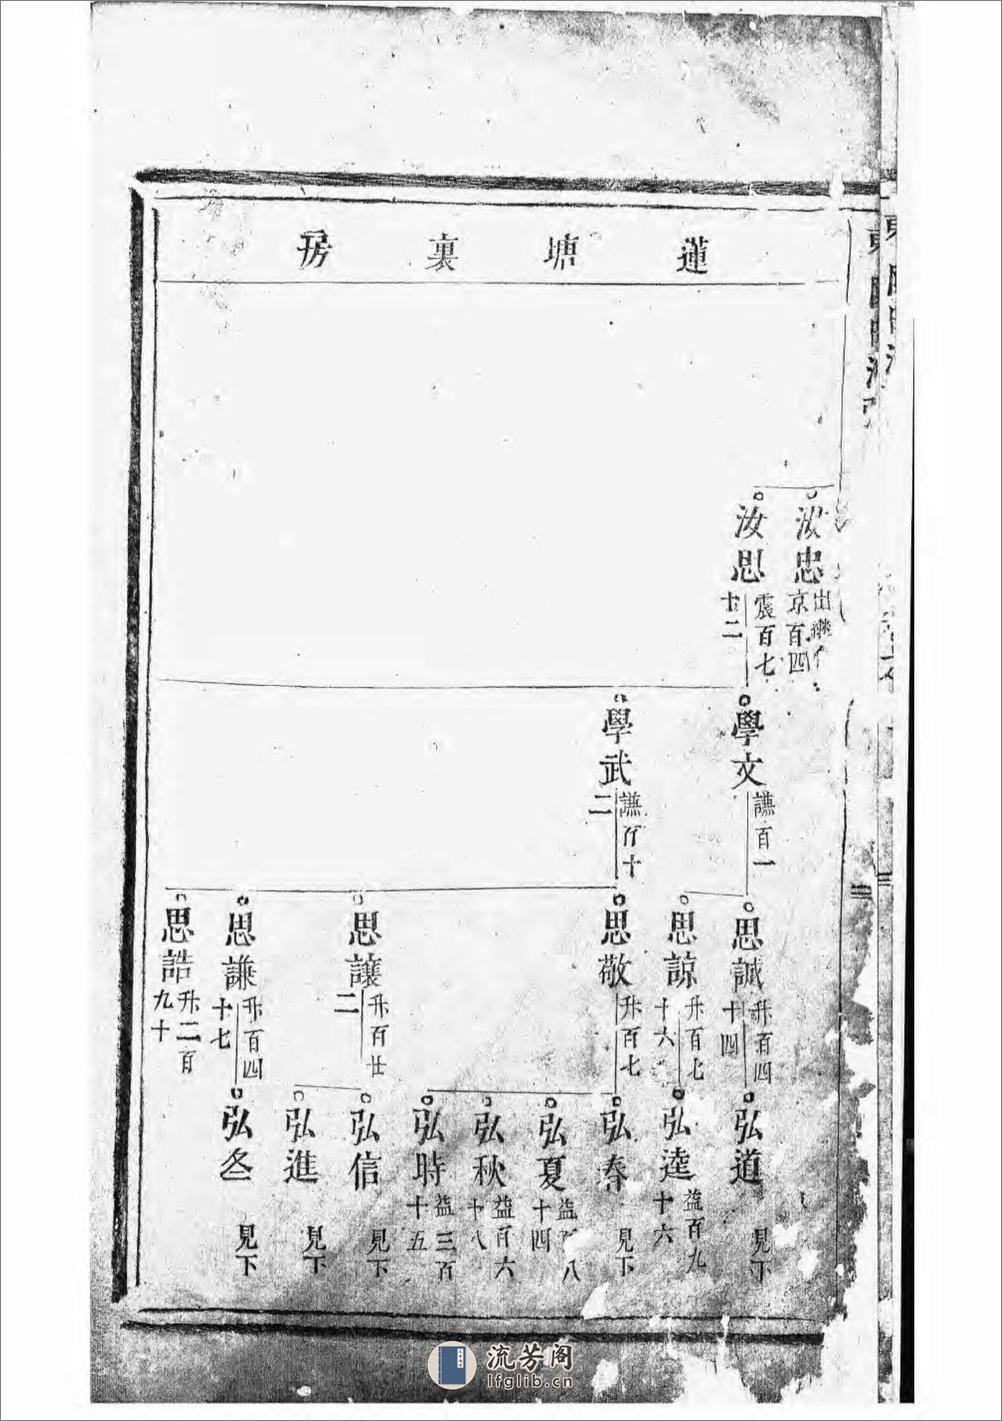 蓮塘裏房
汝忠 出繼 京百四
汝思 震百七十二
學文 謙百一
學武 謙百十二
思誠 升百四十四
思諒 升百七十六
思敬 升百七
思讓 升百廿二
思謙 升百四十七
思誥 升二百九十
弘道 見下
弘逵 益百九十六
弘春 見下
弘夏 益 八十四
弘秋 益百六十八
弘時 益三百十五
弘信 見下
弘進 見下
弘 見下
流芳阁
lfglib.cn